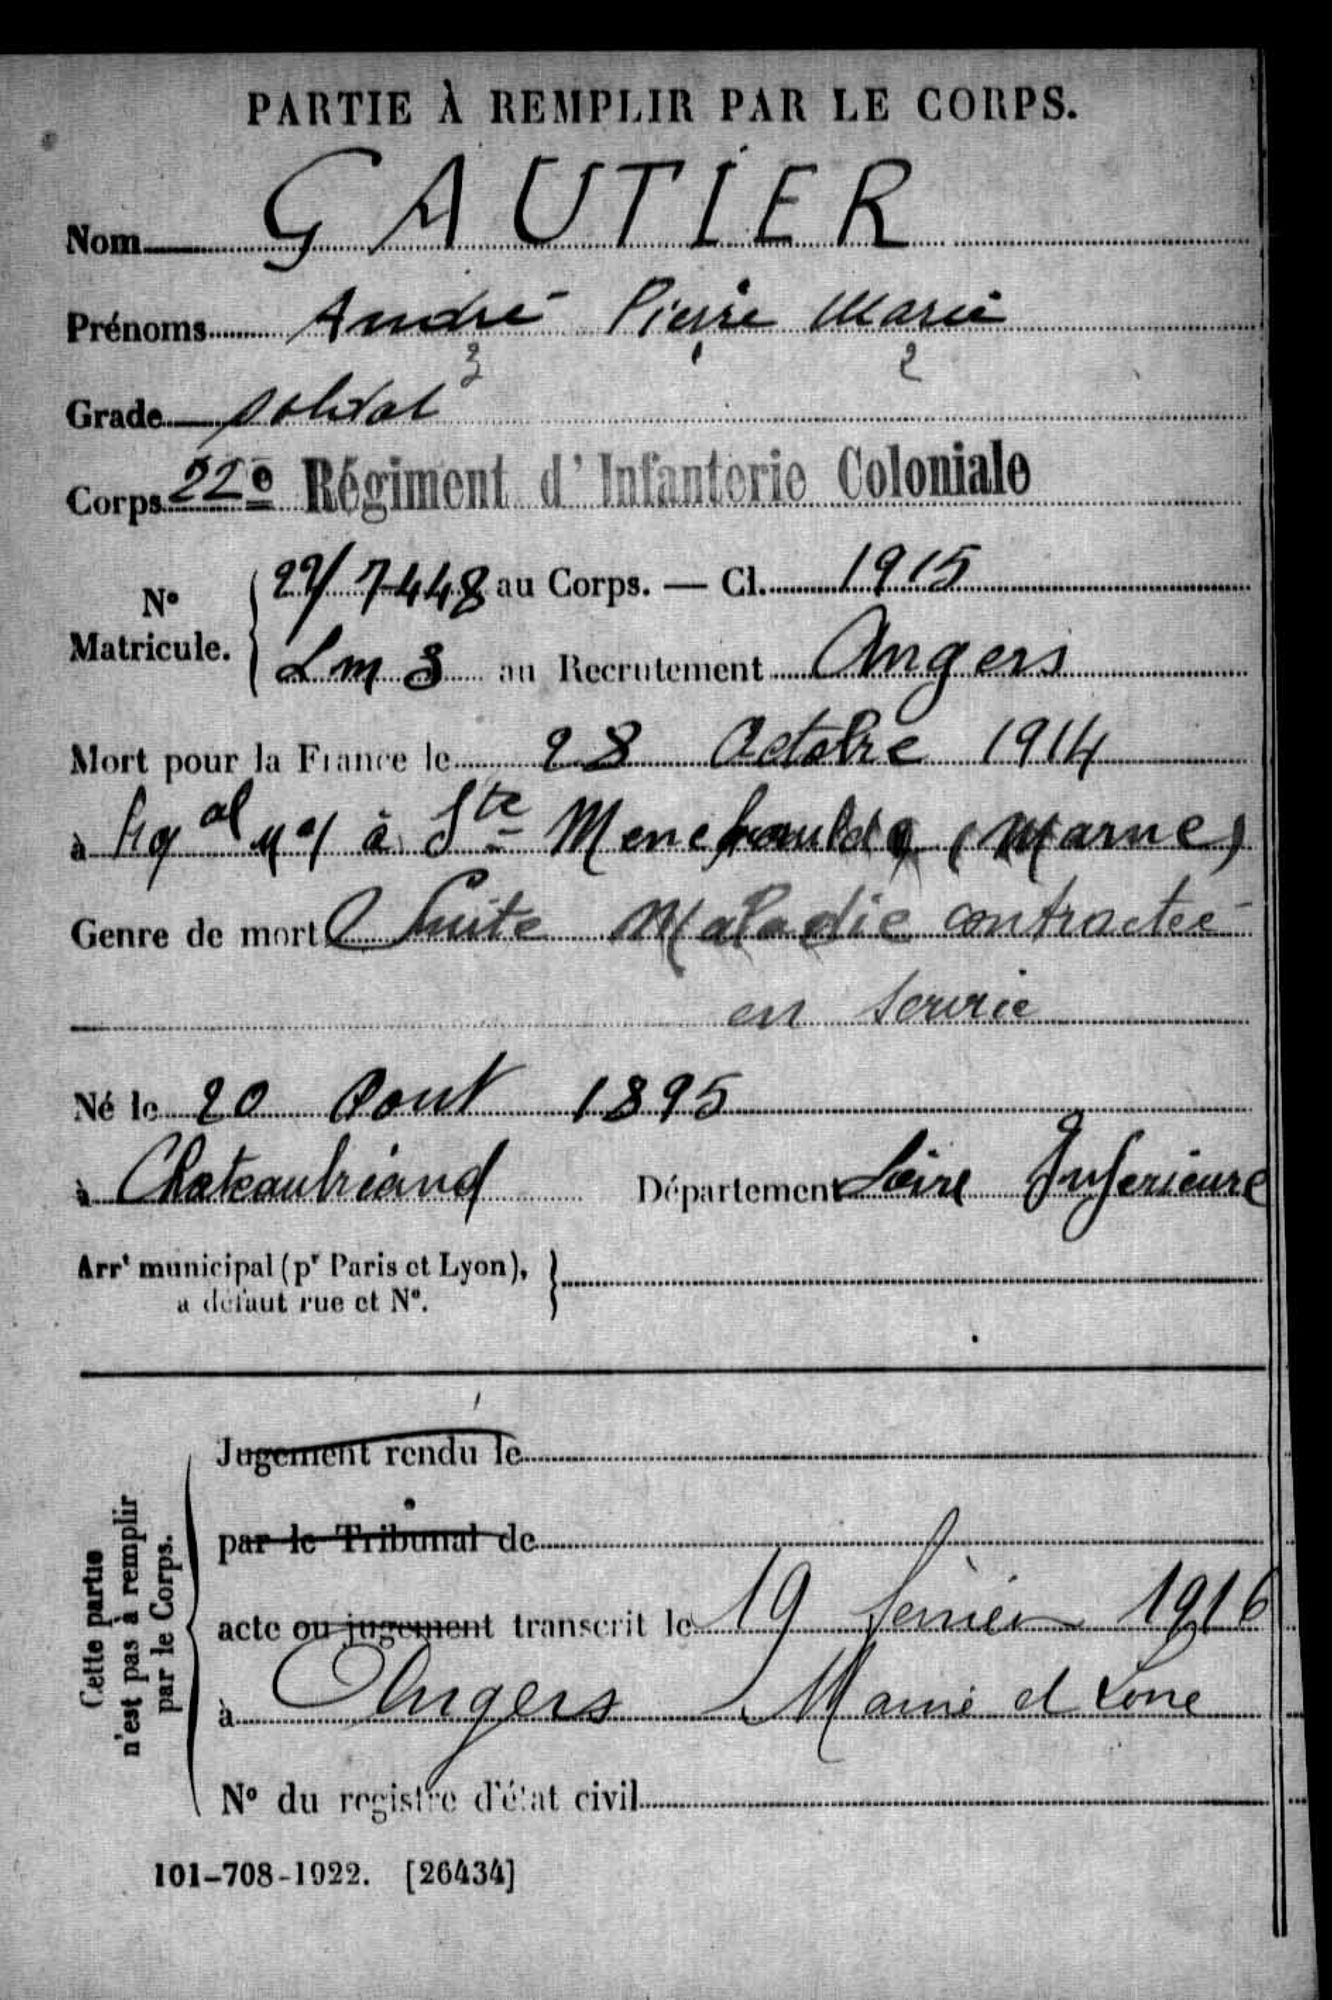 PARTIE À REMPLIR PAR LE CORPS.
Nom GAUTIER
Prénoms André Pierre Marie
3 1 2
Grade soldat
Corps 22e Régiment d'Infanterie Coloniale
N° Matricule. 22/7448 au Corps. — Cl. 1915
Lm 3 au Recrutement Angers
Mort pour la France le 28 Octobre 1914
à Hqal N°1 à Ste Menehoulde (Marne)
Genre de mort Suite Maladie contractée
en service
Né le 20 Aout 1895
à Chateaubriand Département Loire Inferieure
Arrt municipal (pr Paris et Lyon),
a défaut rue et N°.
Cette partie
n'est pas à remplir
par le Corps.
Jugement rendu le
par le Tribunal de
acte ou jugement transcrit le 19 février 1916
à Angers Maine et Loire
N° du registre d'état civil
101-708-1922. [26434]